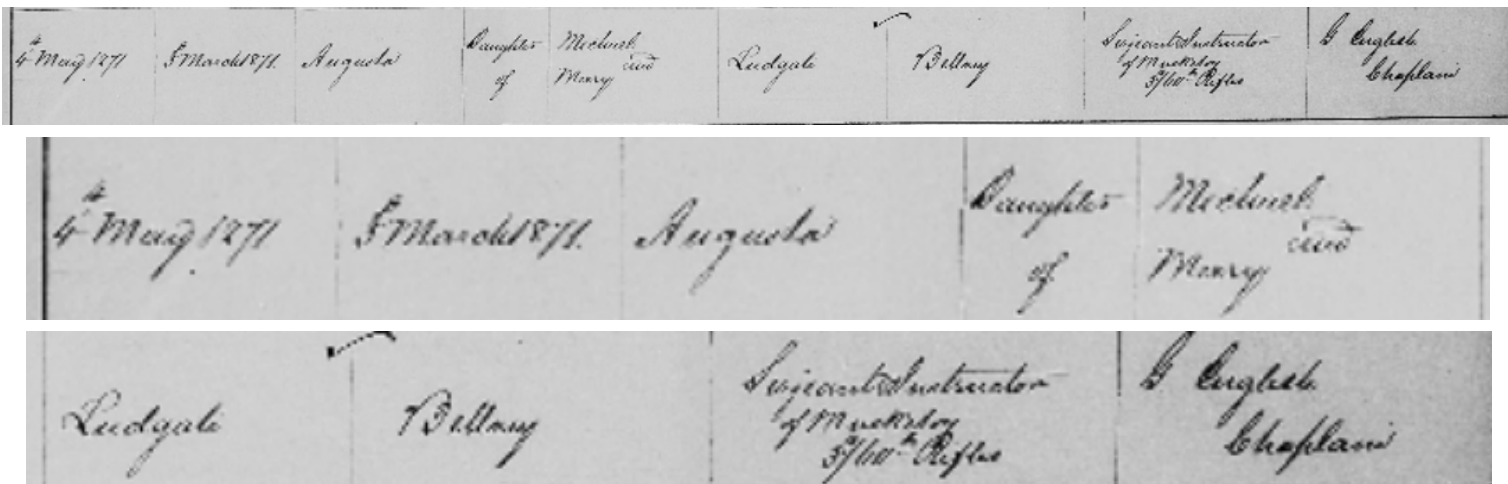 4th May 1871
5 March 1871.
Augusta
Daughter
of
Micheal
and
Mary
Ludgate
Bellary
Serjeant Instructor
of Musketry
3/60th Rifles
G English
Chaplain
4th May 1871
5 March 1871.
Augusta
Daughter
of
Micheal
and
Mary
Ludgate
Bellary
Serjeant Instructor
of Musketry
3/60th Rifles
G English
Chaplain